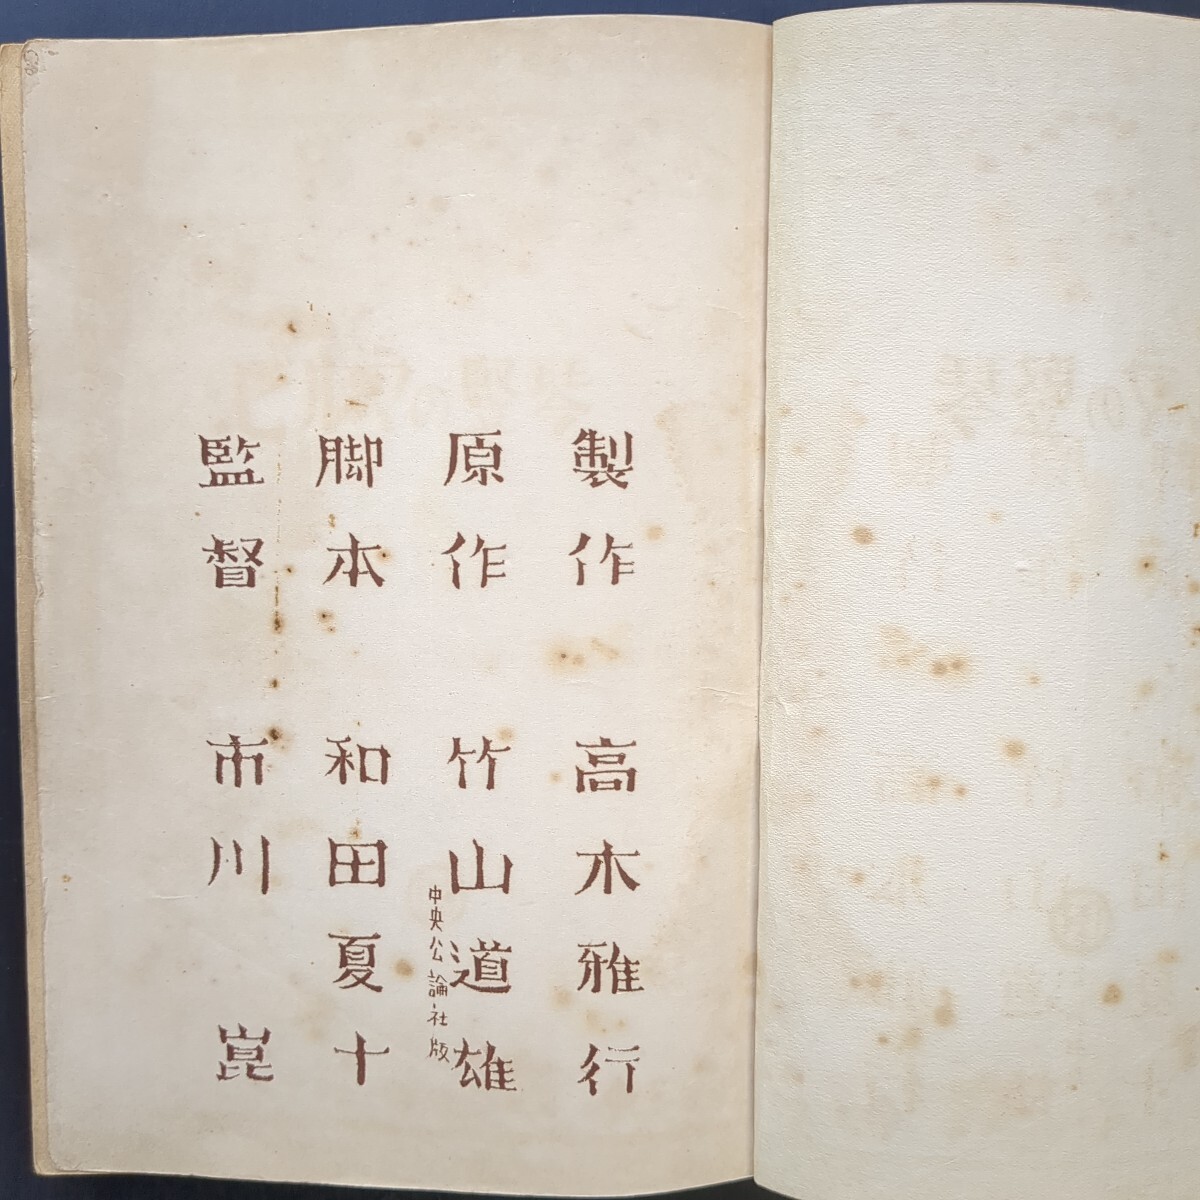 製作 高木雅行
原作 竹山道雄
中央公論社版
脚本 和田夏十
監督 市川崑